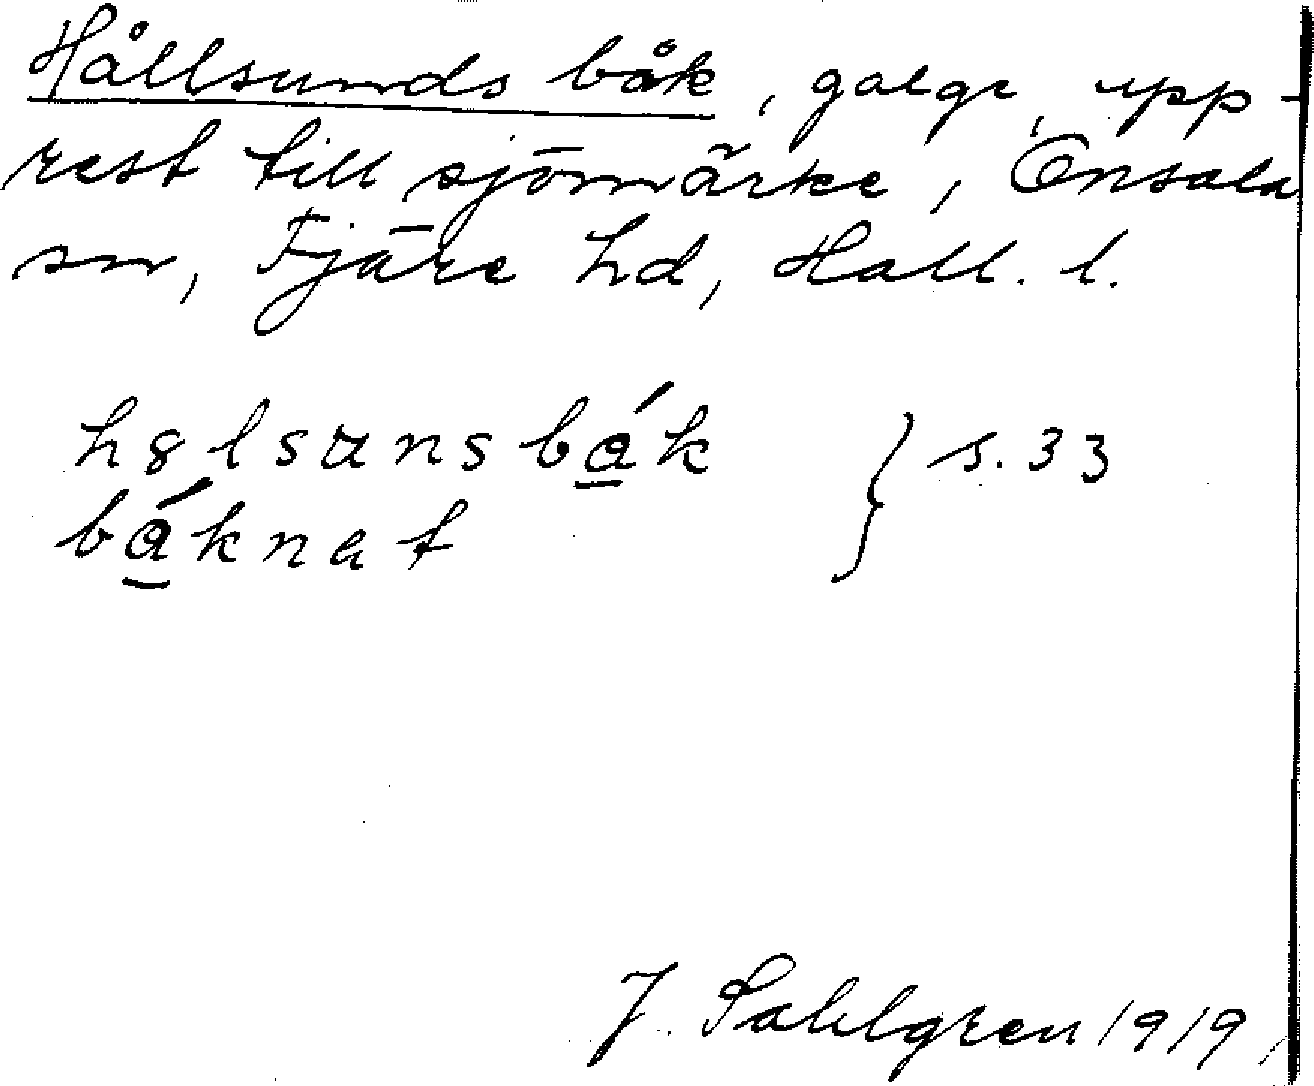 Hållsunds båk, galge, upp-
rest till sjömärke, Onsala
sn, Fjäre hd, Hall. l.
h8lsunsbák } s. 33
báknat
J. Sahlgren 1919